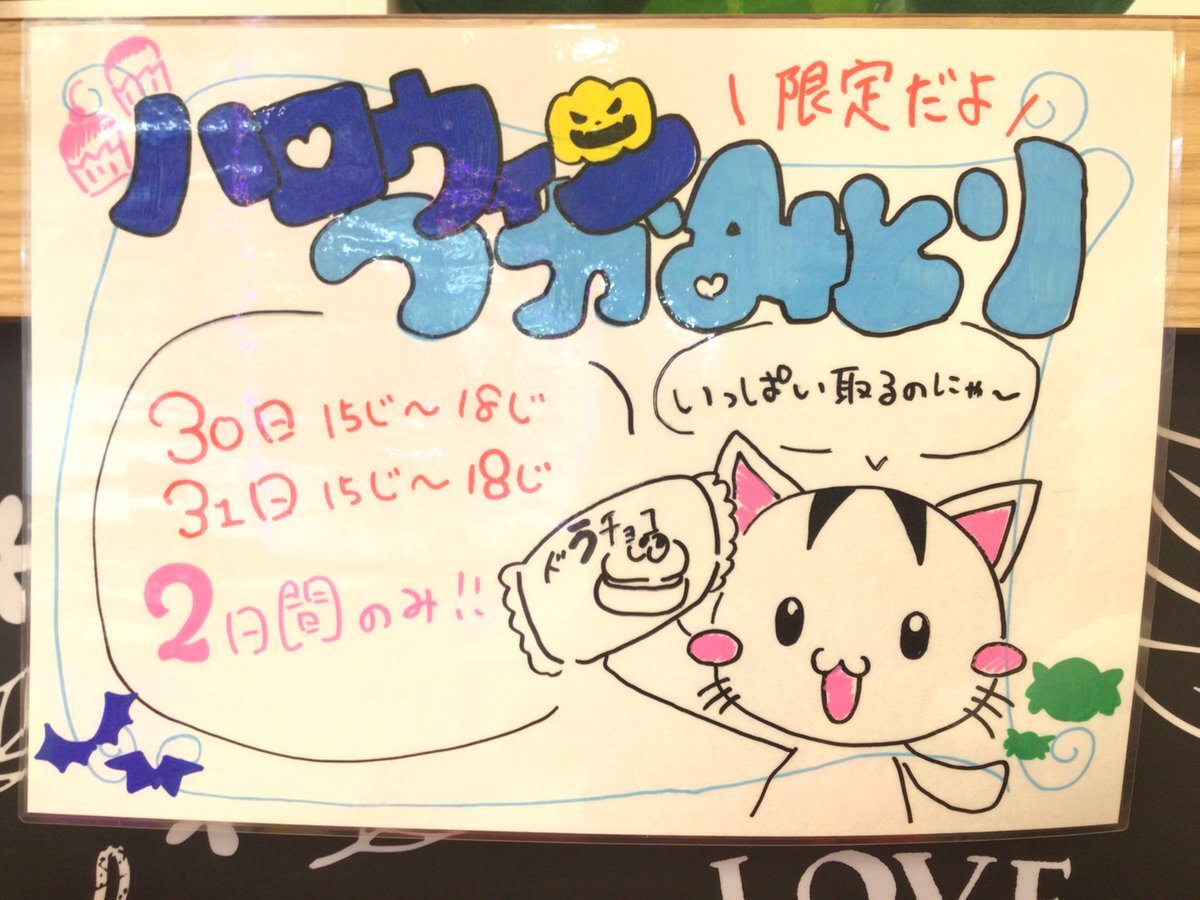 \ 限定だよ /
ハロウィン
つかみどり
いっぱい取るのにゃ〜
30日 15じ〜18じ
31日 15じ〜18じ
2日間のみ!!
ドラチョコ
LOVE